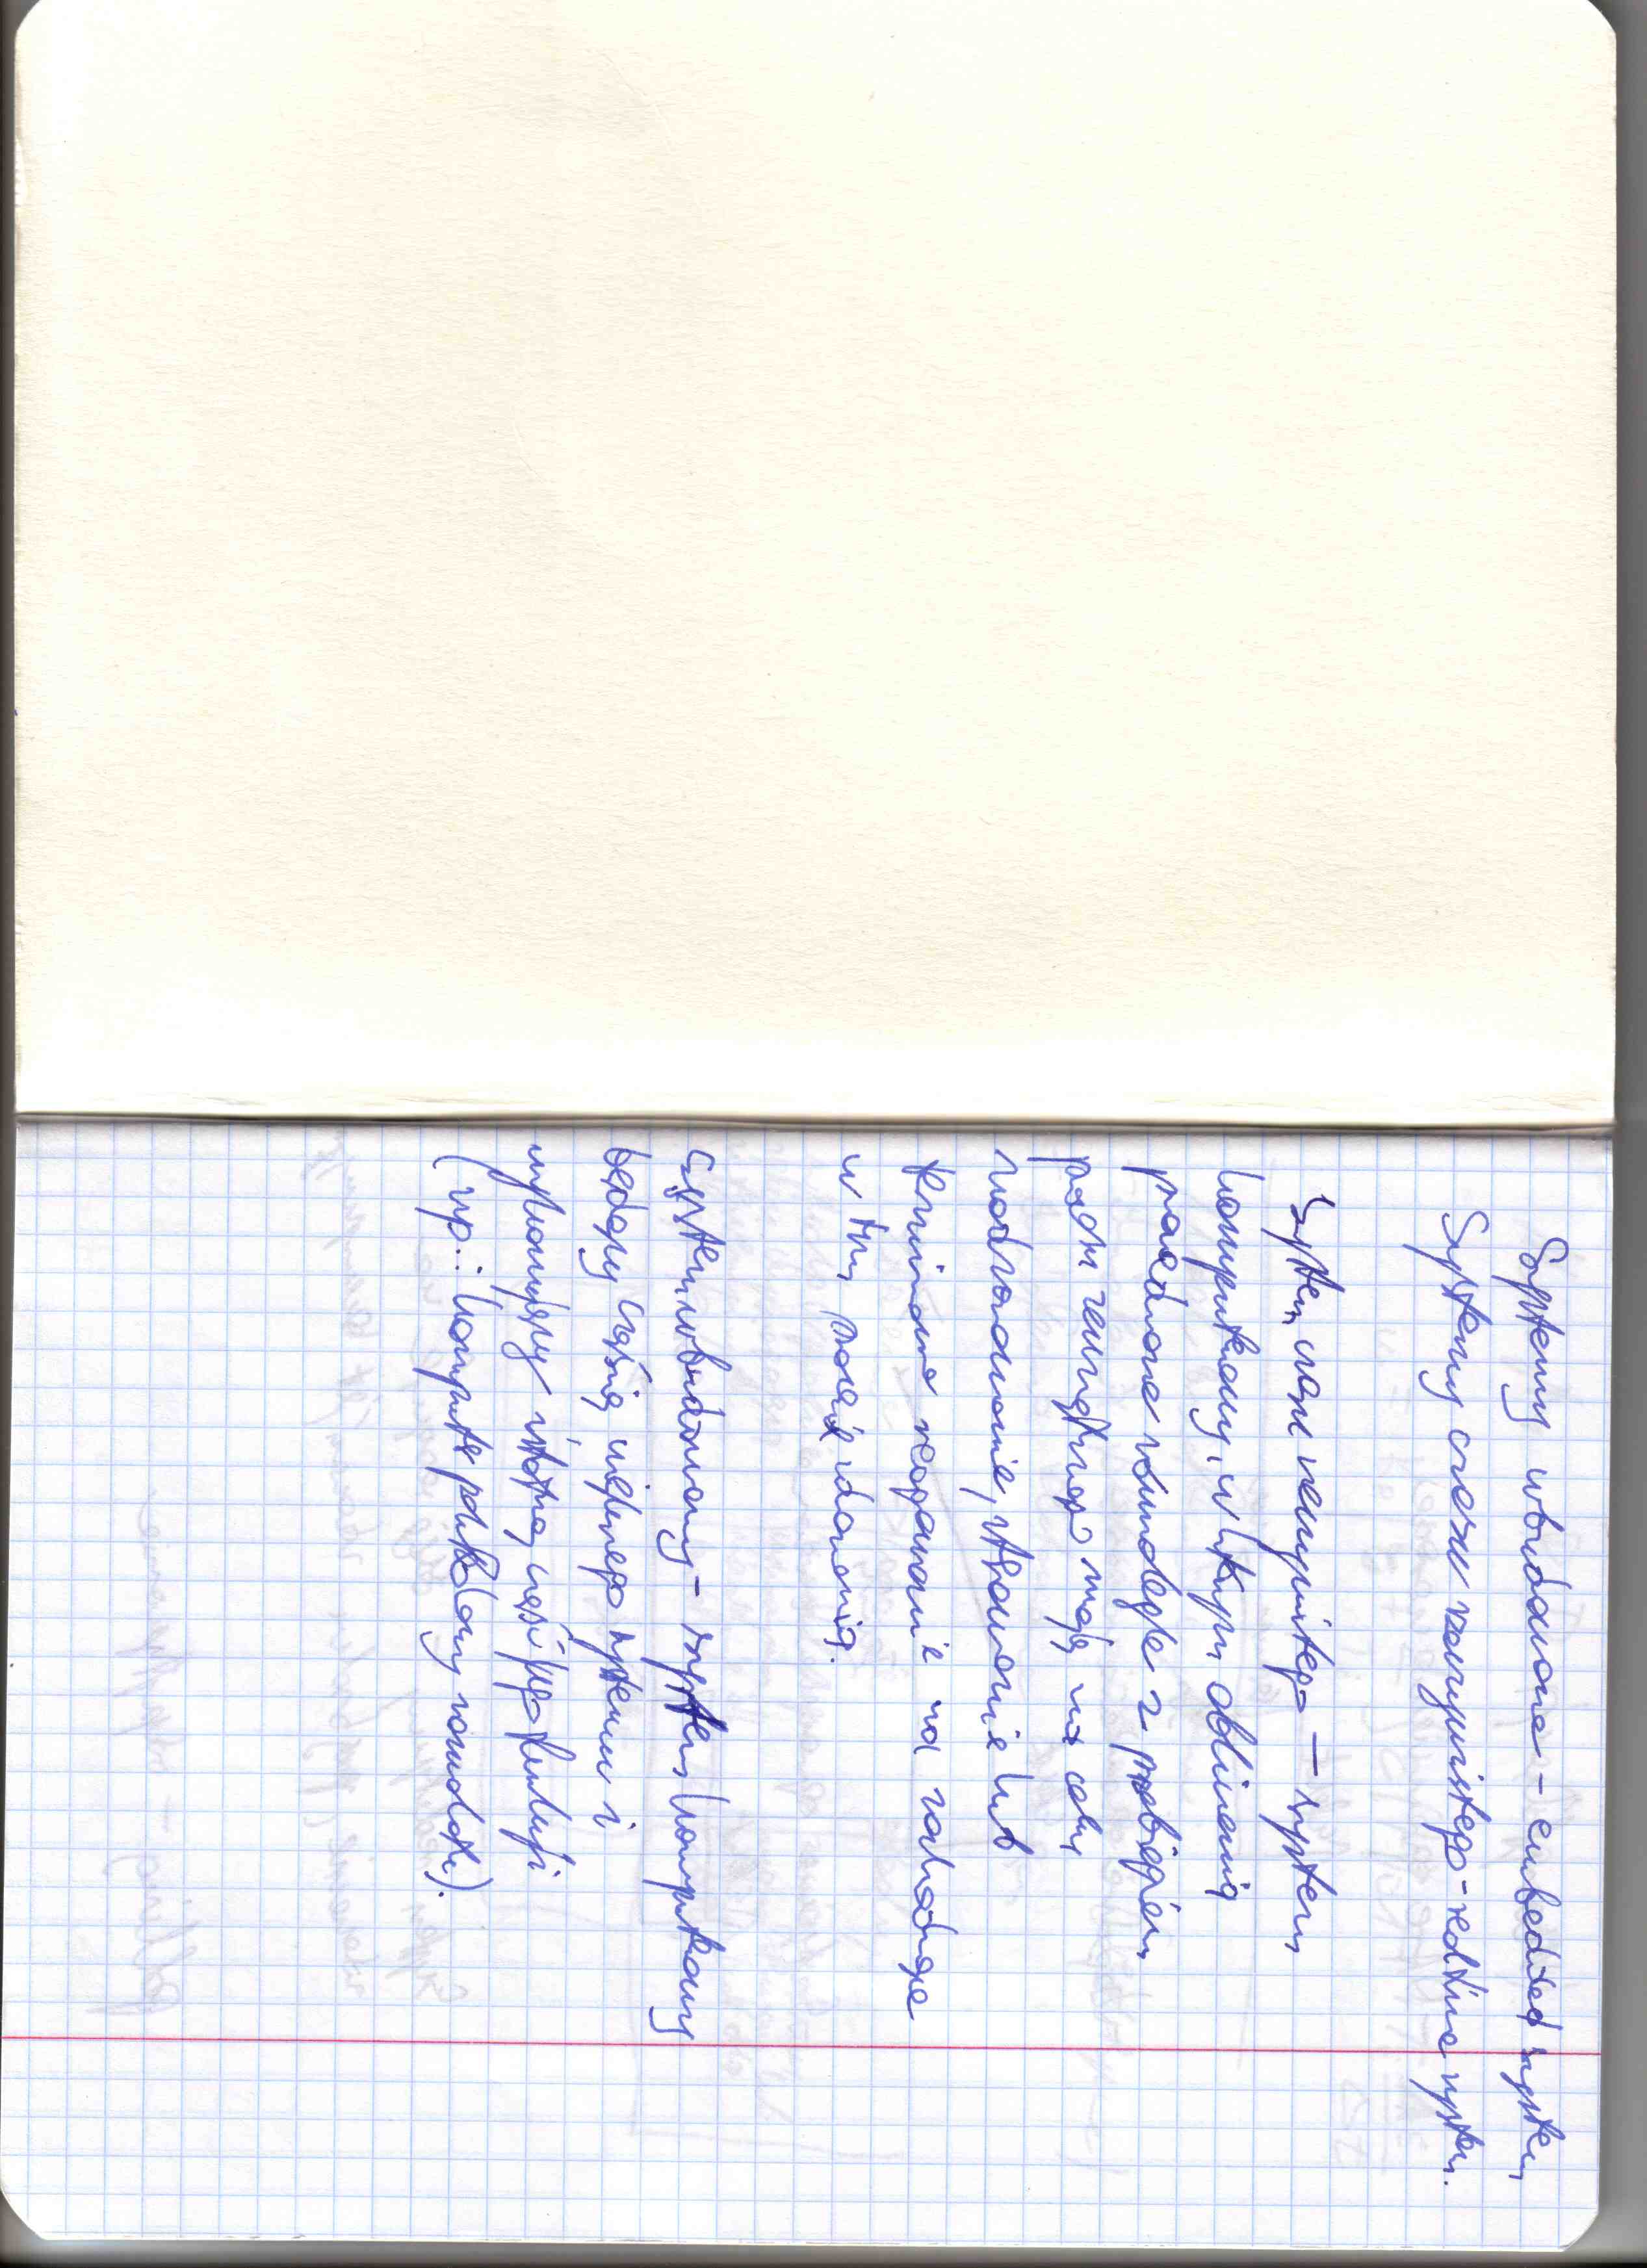 Systemy wbudowane - embedded system
Systemy czasu rzeczywistego - realtime system.
System czasu rzeczywistego — system
komputerowy, w którym obliczenia
prowadzone równolegle z przebiegiem
procesu zewnętrznego mają na celu
nadzorowanie, sterowanie lub
terminowe reagowanie na zachodzące
w tym procesie zdarzenia.
System wbudowany - system komputerowy
będący częścią większego systemu i
wykonujący istotną część jego funkcji
(np.: komputer pokładowy samolotu).